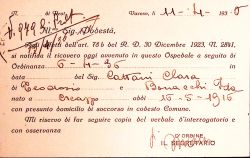 N. di Prot. Varese, 11-4-1936
Ill. Sig. Podestà,
Agli effetti dell'art. 78 b del R. D. 30 Dicembre 1923, N. 2841,
si notifica il ricovero oggi avvenuto in questo Ospedale a seguito di
Ordinanza 6-4-36
in data del Sig. Cattani Clara
di Teodosio e Bonacchi Ada
nato a addì 15-5-1916
con presunto domicilio di soccorso in codesto Comune.
Mi riservo di far seguire copia del verbale d'interrogatorio e
con osservanza
D'ORDINE
IL SEGRETARIO